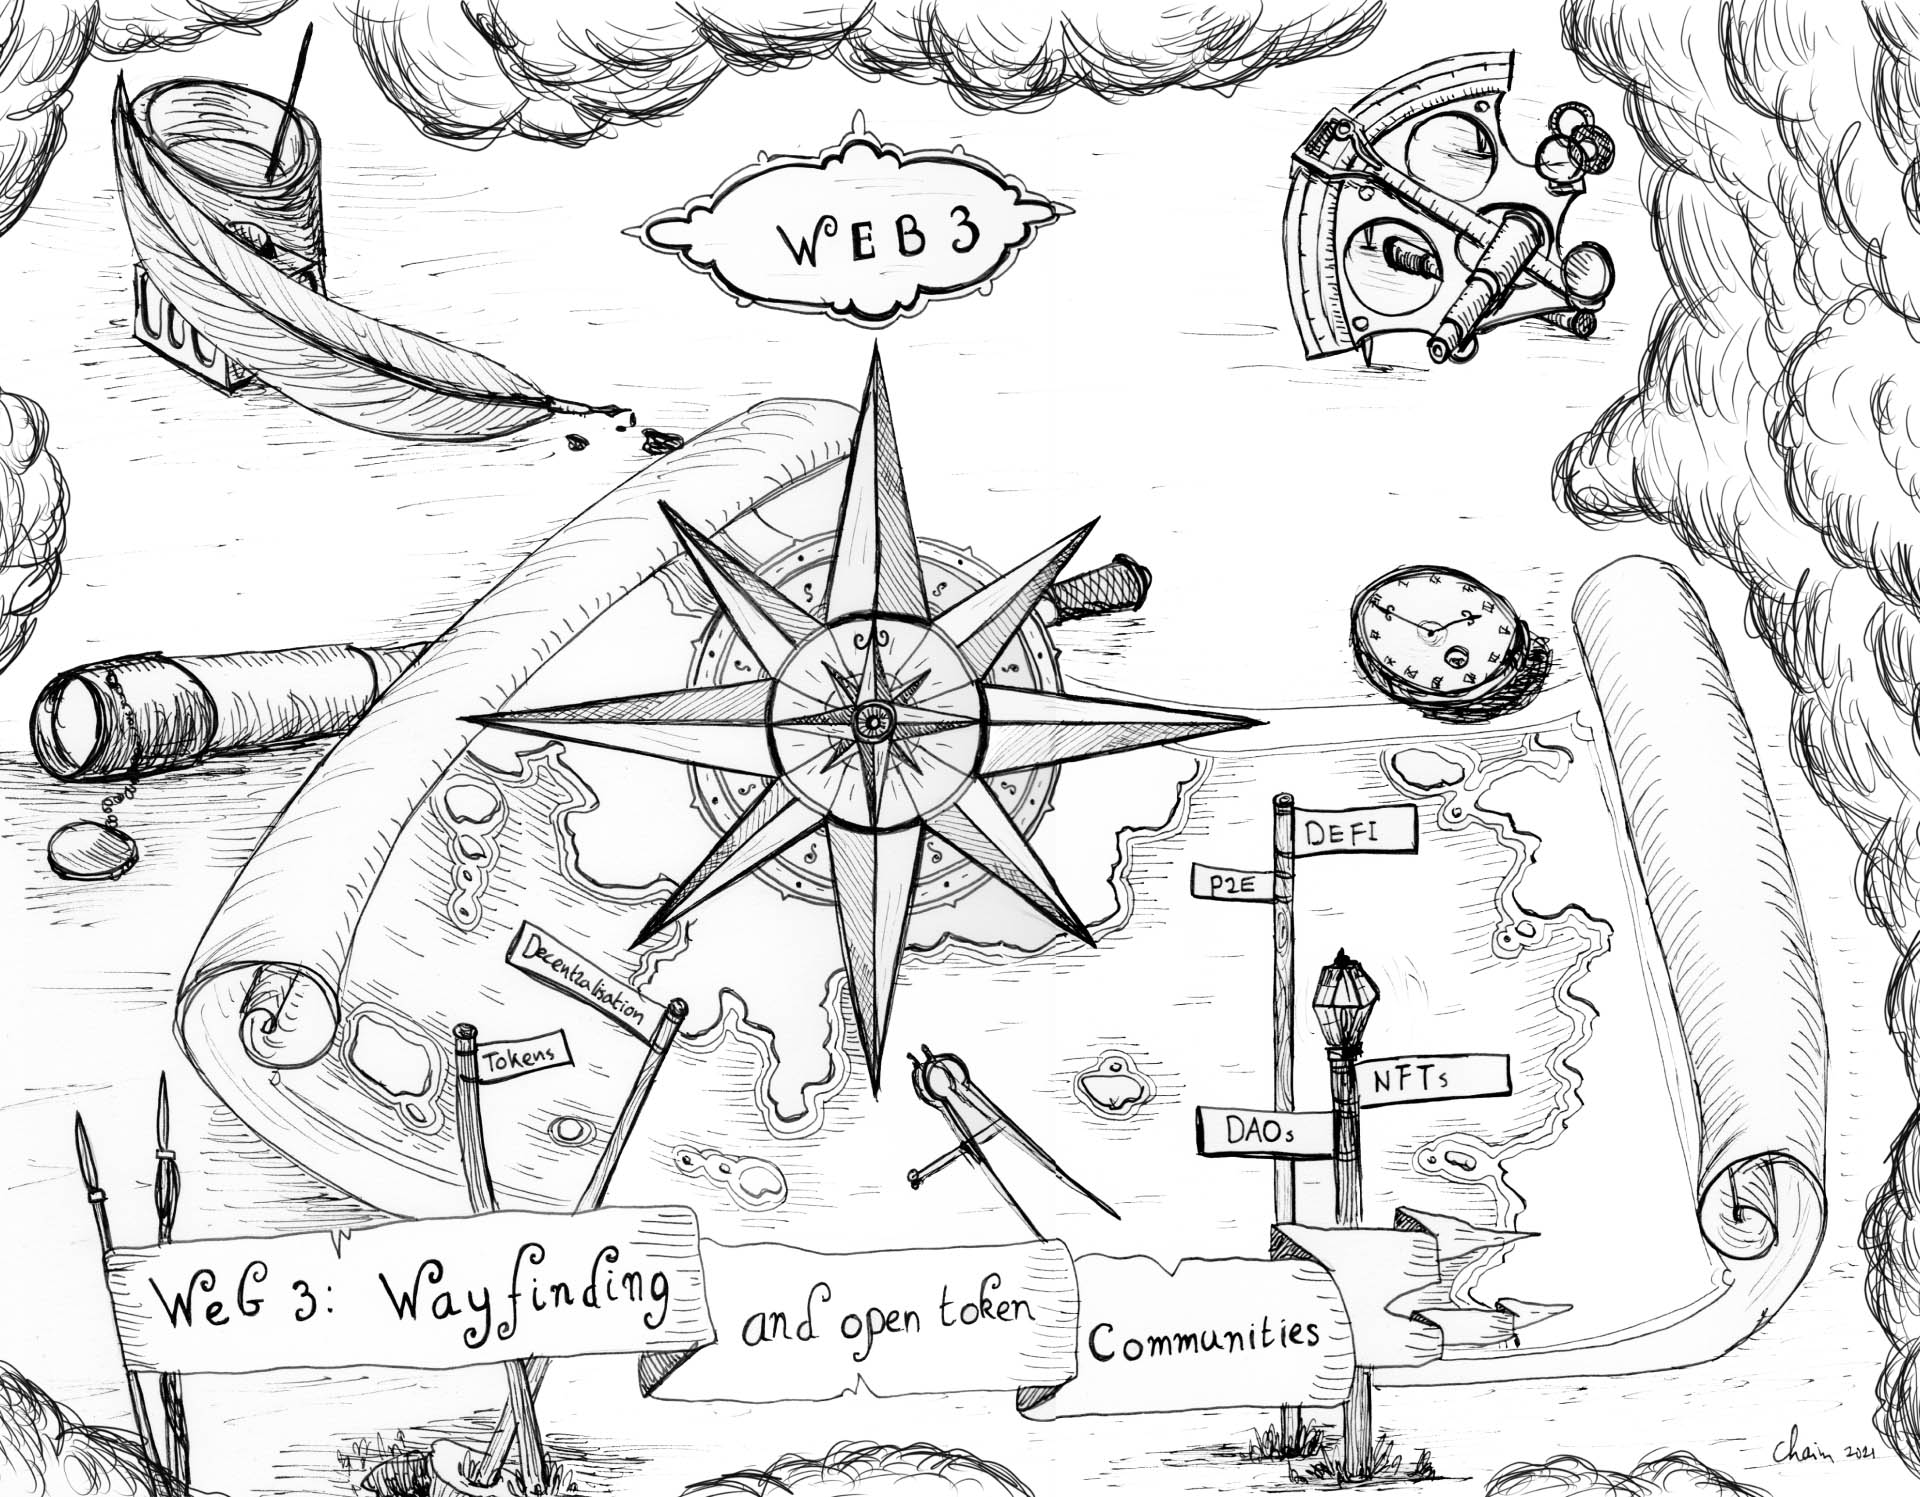 WEB 3
DEFI
P2E
Decentralisation
Tokens
NFTs
DAOs
Web 3: Wayfinding
and open token
Communities
Chaim 2021